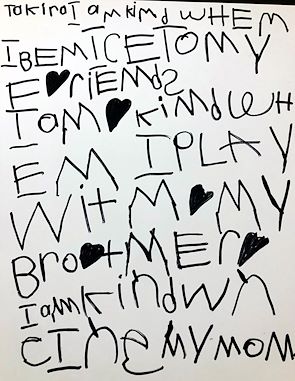 Takira I am kind WHEM
I BE MICE TO MY
E♥riEMds
I am ♥ kimd WH
EM I PLAY
Wit M♥MY
Bro♥tMEr♥
I am kindwn
CINE MY MOM